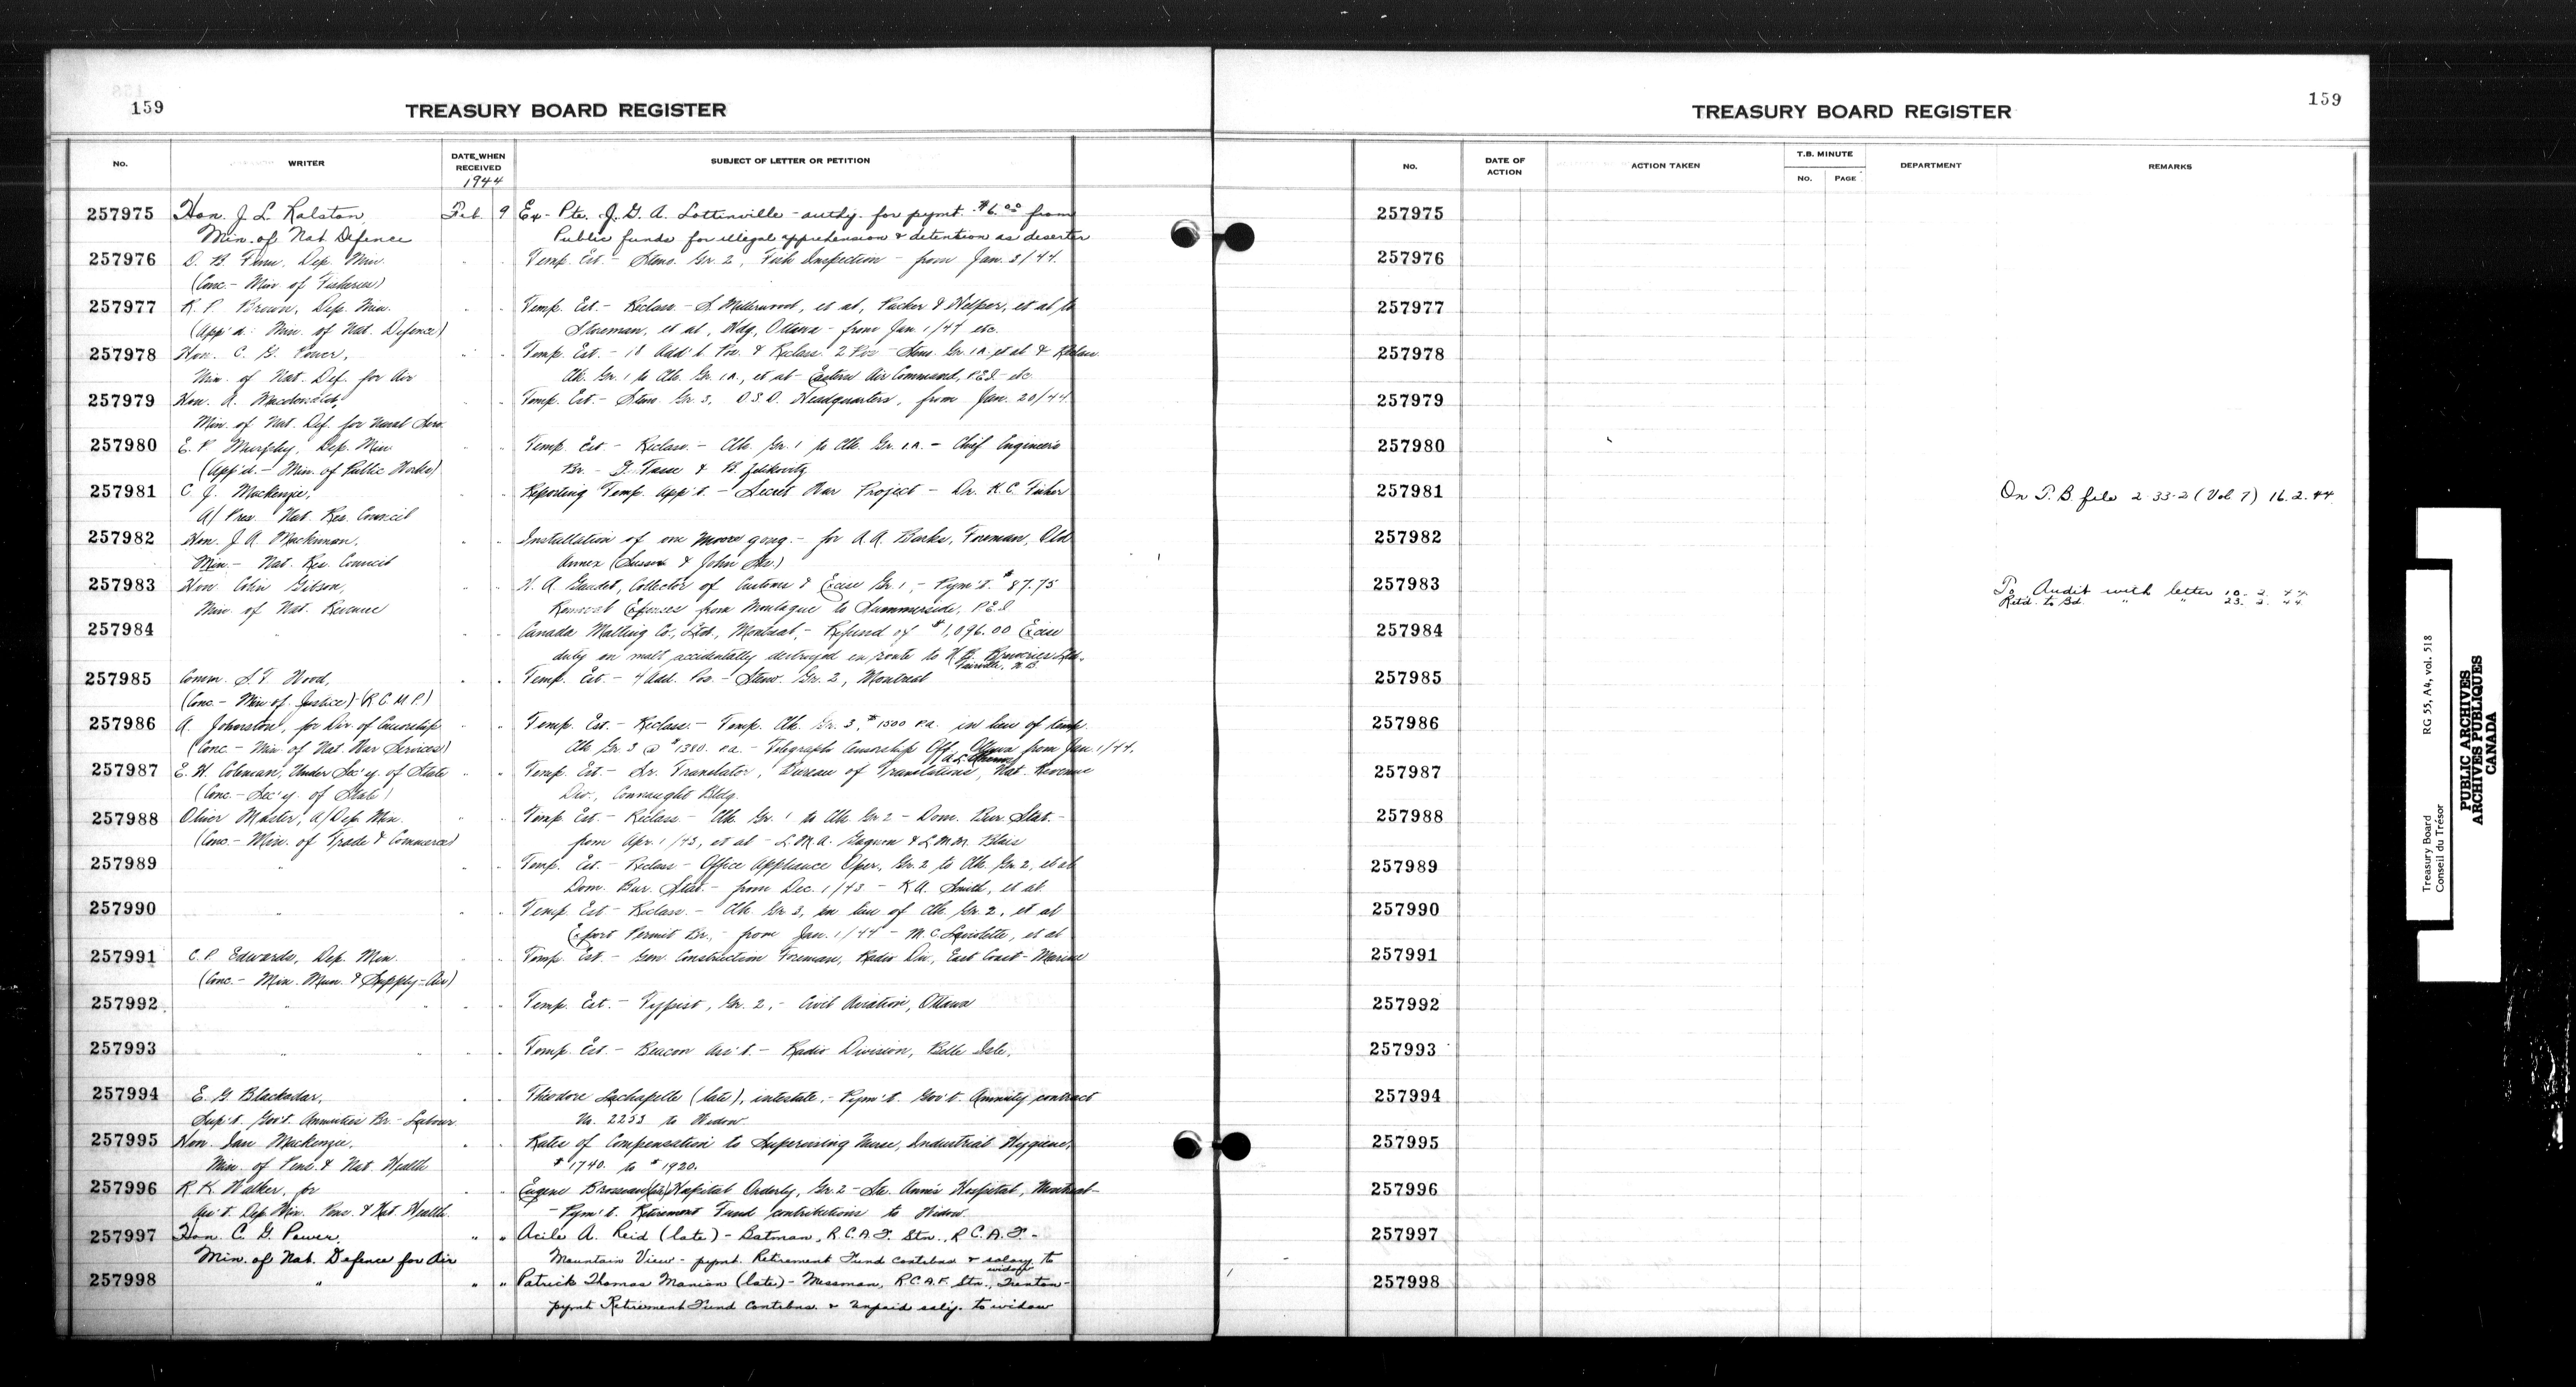 159
TREASURY BOARD REGISTER
No.
WRITER
DATE WHEN RECEIVED
1944
SUBJECT OF LETTER OR PETITION
257975 Hon. J. L. Ralston, Feb. 9 Ex-Pte. J. G. A. Lottinville - authy. for pymt. $6.00 from
Min. of Nat. Defence Public funds for illegal apprehension & detention as deserter
257976 D. B. Finn, Dep. Min. " " Temp. Est. - Steno. Gr. 2, Fish Inspection - from Jan. 3/44.
(Conc. - Min. of Fisheries)
257977 K. P. Brown, Dep. Min. " " Temp. Est. - Reclass. - S. Millerwood, et al, Packer & Helper, et al to
(App'd. : Min. of Nat. Defence) Storeman, et al, Hdq. Ottawa - from Jan. 1/44 etc.
257978 Hon. C. G. Power, " " Temp. Est. - 18 Add'l. Pos. & Reclass. 2 Pos - Steno. Gr. 1A. et al & Reclass.
Min. of Nat. Def. for Air Clk. Gr. 1 to Clk. Gr. 1A., et al - Eastern Air Command, P.E.I. etc.
257979 Hon. A. Macdonald, " " Temp. Est. - Steno. Gr. 3, O.S.O. Headquarters, from Jan. 20/44.
Min. of Nat. Def. for Naval Serv.
257980 E. P. Murphy, Dep. Min. " " Temp. Est. - Reclass. - Clk. Gr. 1 to Clk. Gr. 1A. - Chief Engineer's
(App'd. - Min. of Public Works) Br. - & B.
257981 C. J. Mackenzie, " " Reporting Temp. App't. - Secret War Project - Dr. K. C. Fisher
A/ Pres. Nat. Res. Council
257982 Hon. J. A. MacKinnon, " " Installation of one Moore gong - for A. A. Barks, Foreman, Old
Min. - Nat. Res. Council Annex (Sussex & John Sts.)
257983 Hon. Colin Gibson, " " H. A. Gaudet, Collector of Customs & Excise Gr. 1, - Pym't. $87.75
Min. of Nat. Revenue Removal Expenses from Montague to Summerside, P.E.I.
257984 " " " Canada Malting Co., Ltd., Montreal, - Refund of $1,096.00 Excise
duty on malt accidentally destroyed en route to N.B. Breweries Ltd.
Fairville, N.B.
257985 Comm. S. T. Wood, " " Temp. Est. - 4 Add. Pos. - Steno. Gr. 2, Montreal
(Conc. - Min. of Justice) - (R.C.M.P.)
257986 A. Johnston, for Dir. of Censorship " " Temp. Est. - Reclass. - Temp. Clk. Gr. 3, $1500 P.A. in lieu of temp.
(Conc. - Min. of Nat. War Services) Clk Gr. 3 @ $1380. P.A. - Telegraph Censorship Off., Ottawa from Jan. 1/44.
257987 E. H. Coleman, Under Sec'y. of State " " Temp. Est. - Sr. Translator, Bureau of Translations, Nat. Revenue
(Conc. - Sec'y. of State) Div., Connaught Bldg.
257988 Oliver Master, A/Dep. Min. " " Temp. Est. - Reclass. - Clk. Gr. 1 to Clk. Gr. 2 - Dom. Bur. Stat. -
(Conc. - Min. of Trade & Commerce) from Apr. 1/43, et al - L.M.A. Gagnon & L.M.M. Blais
257989 " " " Temp. Est. - Reclass - Office Appliance Oper., Gr. 2 to Clk. Gr. 2, et al
Dom. Bur. Stat. - from Dec. 1/43 - K.A. Smith, et al.
257990 " " " Temp. Est - Reclass. - Clk. Gr. 3, in lieu of Clk. Gr. 2, et al
Export Permit Br. - from Jan. 1/44 - M. C. Laviolette, et al
257991 C. P. Edwards, Dep. Min. " " Temp. Est. - Gen. Construction Foreman, Radio Div., East Coast - Marine
(Conc. - Min. Mun. & Supply - Air)
257992 " " " Temp. Est. - Typist, Gr. 2, - Civil Aviation, Ottawa
257993 " " " " Temp. Est. - Beacon Ass't. - Radio Division, Belle Isle,
257994 E. G. Blackadar, " " Theodore Lachapelle (late), intestate, - Pym't. Gov't. Annuity contract
Sup't. Gov't. Annuities Br. - Labour No. 2253 to Widow.
257995 Hon. Ian Mackenzie, " " Rates of Compensation to Supervising Nurse, Industrial Hygiene,
Min. of Pens. & Nat. Health $1740. to $1920.
257996 R. K. Walker, for " " Eugene Brosseau Hospital Orderly, Gr. 2 - Ste. Anne's Hospital, Montreal -
Ass't. Dep. Min. Pens. & Nat. Health. - Pym't. Retirement Fund contributions to Widow.
257997 Hon. C. G. Power, " " Acile A. Reid (late) - Batman, R.C.A.F. Stn., R.C.A.F. -
Min. of Nat. Defence for Air Mountain View - pymt. Retirement Fund contribns & salary to
widow
257998 " " " Patrick Thomas Manion (late) - Messman, R.C.A.F. Stn., Trenton -
pymt Retirement Fund contribns. & unpaid saly. to widow
159
TREASURY BOARD REGISTER
No.
DATE OF ACTION
ACTION TAKEN
T.B. MINUTE
No.
PAGE
DEPARTMENT
REMARKS
257975
257976
257977
257978
257979
257980
257981 On T.B. file 2-33-2 (Vol 7) 16.2.44.
257982
257983 To Audit with letter 10. 2. 44.
Retd. to Bd. " " 23. 2. 44.
257984
257985
257986
257987
257988
257989
257990
257991
257992
257993
257994
257995
257996
257997
257998
Treasury Board RG 55, A4, vol. 518
Conseil du Trésor
PUBLIC ARCHIVES
ARCHIVES PUBLIQUES
CANADA